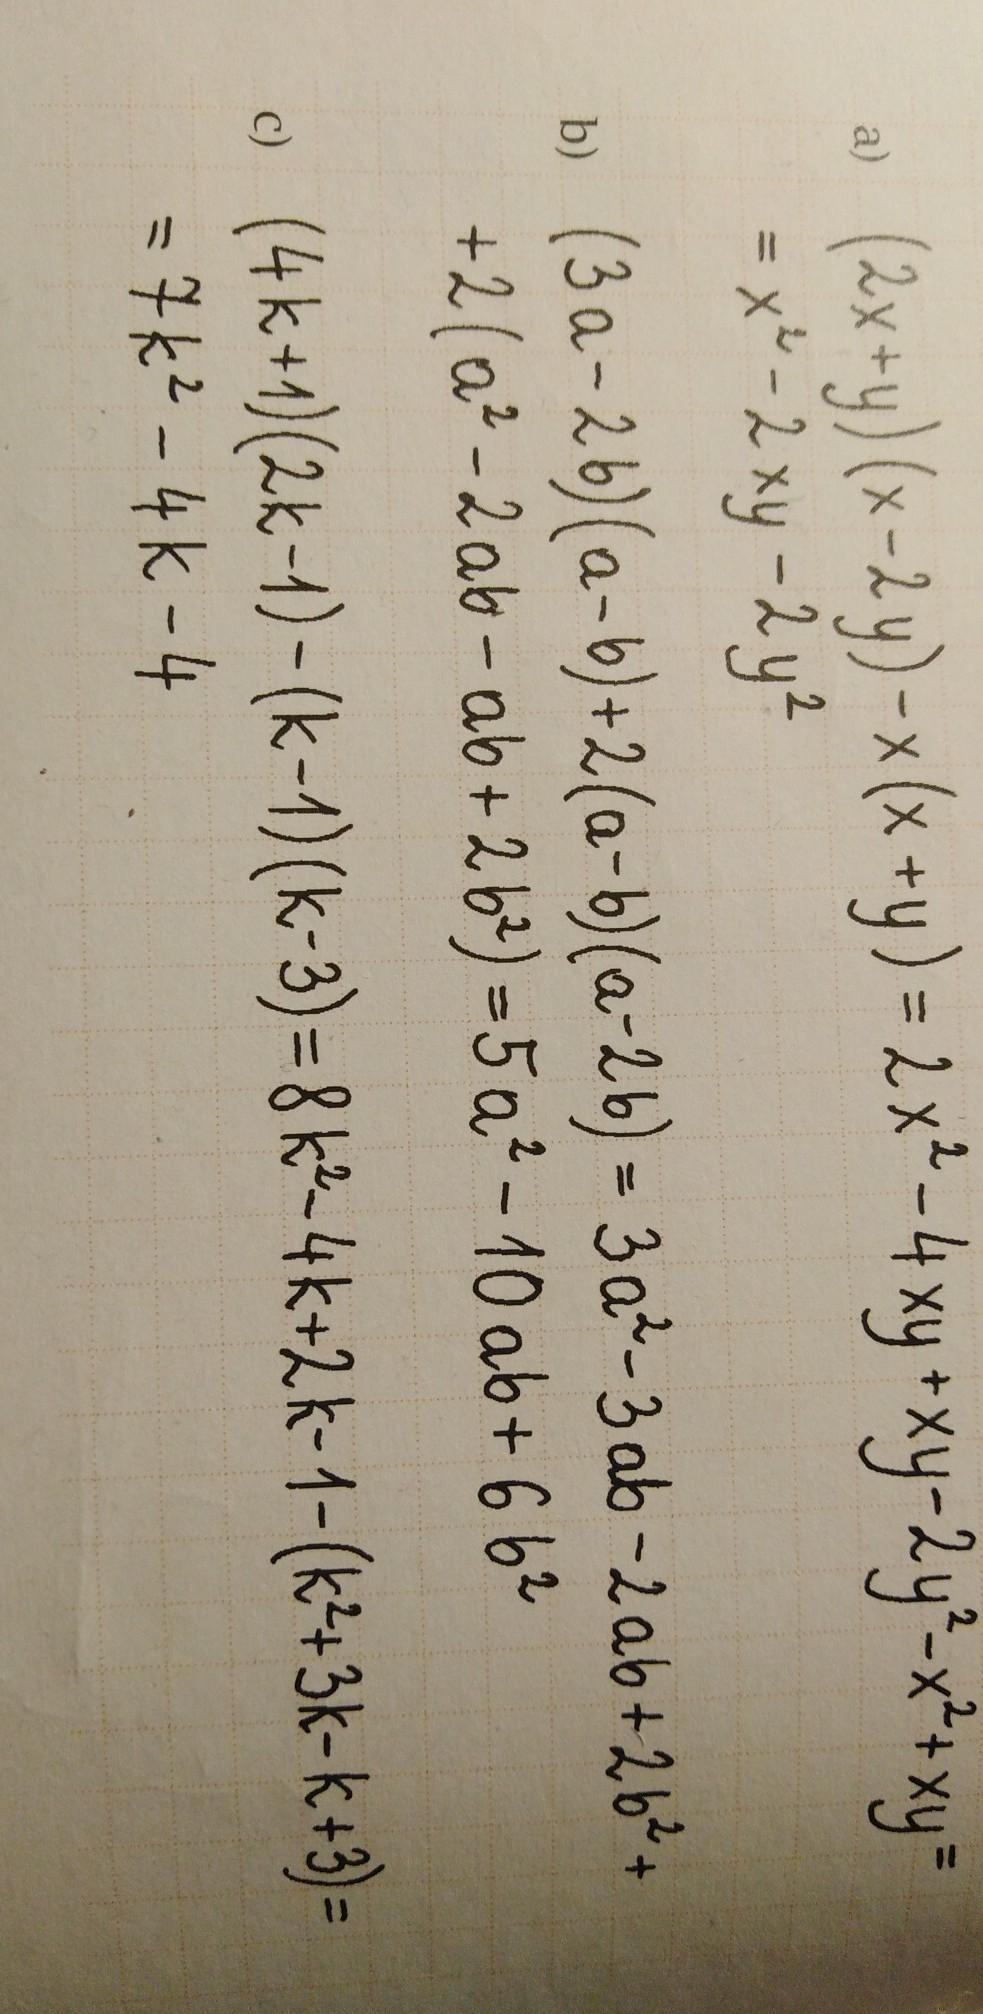 a) (2x+y)(x-2y)-x(x+y)=2x²-4xy+xy-2y²-x²+xy=
=x²-2xy-2y²
b) (3a-2b)(a-b)+2(a-b)(a-2b)=3a²-3ab-2ab+2b²+
+2(a²-2ab-ab+2b²)=5a²-10ab+6b²
c) (4k+1)(2k-1)-(k-1)(k-3)=8k²-4k+2k-1-(k²+3k-k+3)=
=7k²-4k-4